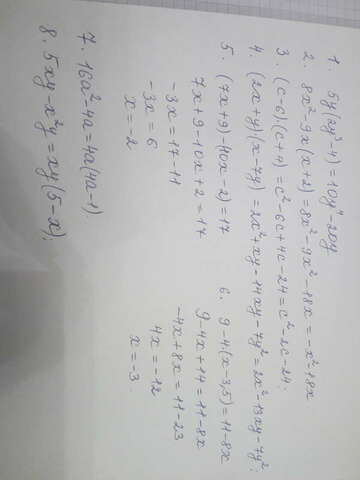 1. 5y(2y³-4)=10y⁴-20y
2. 8x²-9x(x+2)=8x²-9x²-18x=-x²-18x
3. (c-6)·(c+4)=c²-6c+4c-24=c²-2c-24.
4. (2x+y)·(x-7y)=2x²+xy-14xy-7y²=2x²-13xy-7y².
5. (7x+9)-(10x-2)=17.
7x+9-10x+2=17
-3x=17-11
-3x=6
x=-2
6. 9-4(x-3,5)=11-8x
9-4x+14=11-8x
-4x+8x=11-23
4x=-12
x=-3.
7. 16a²-4a=4a(4a-1).
8. 5xy-x²y=xy(5-x).